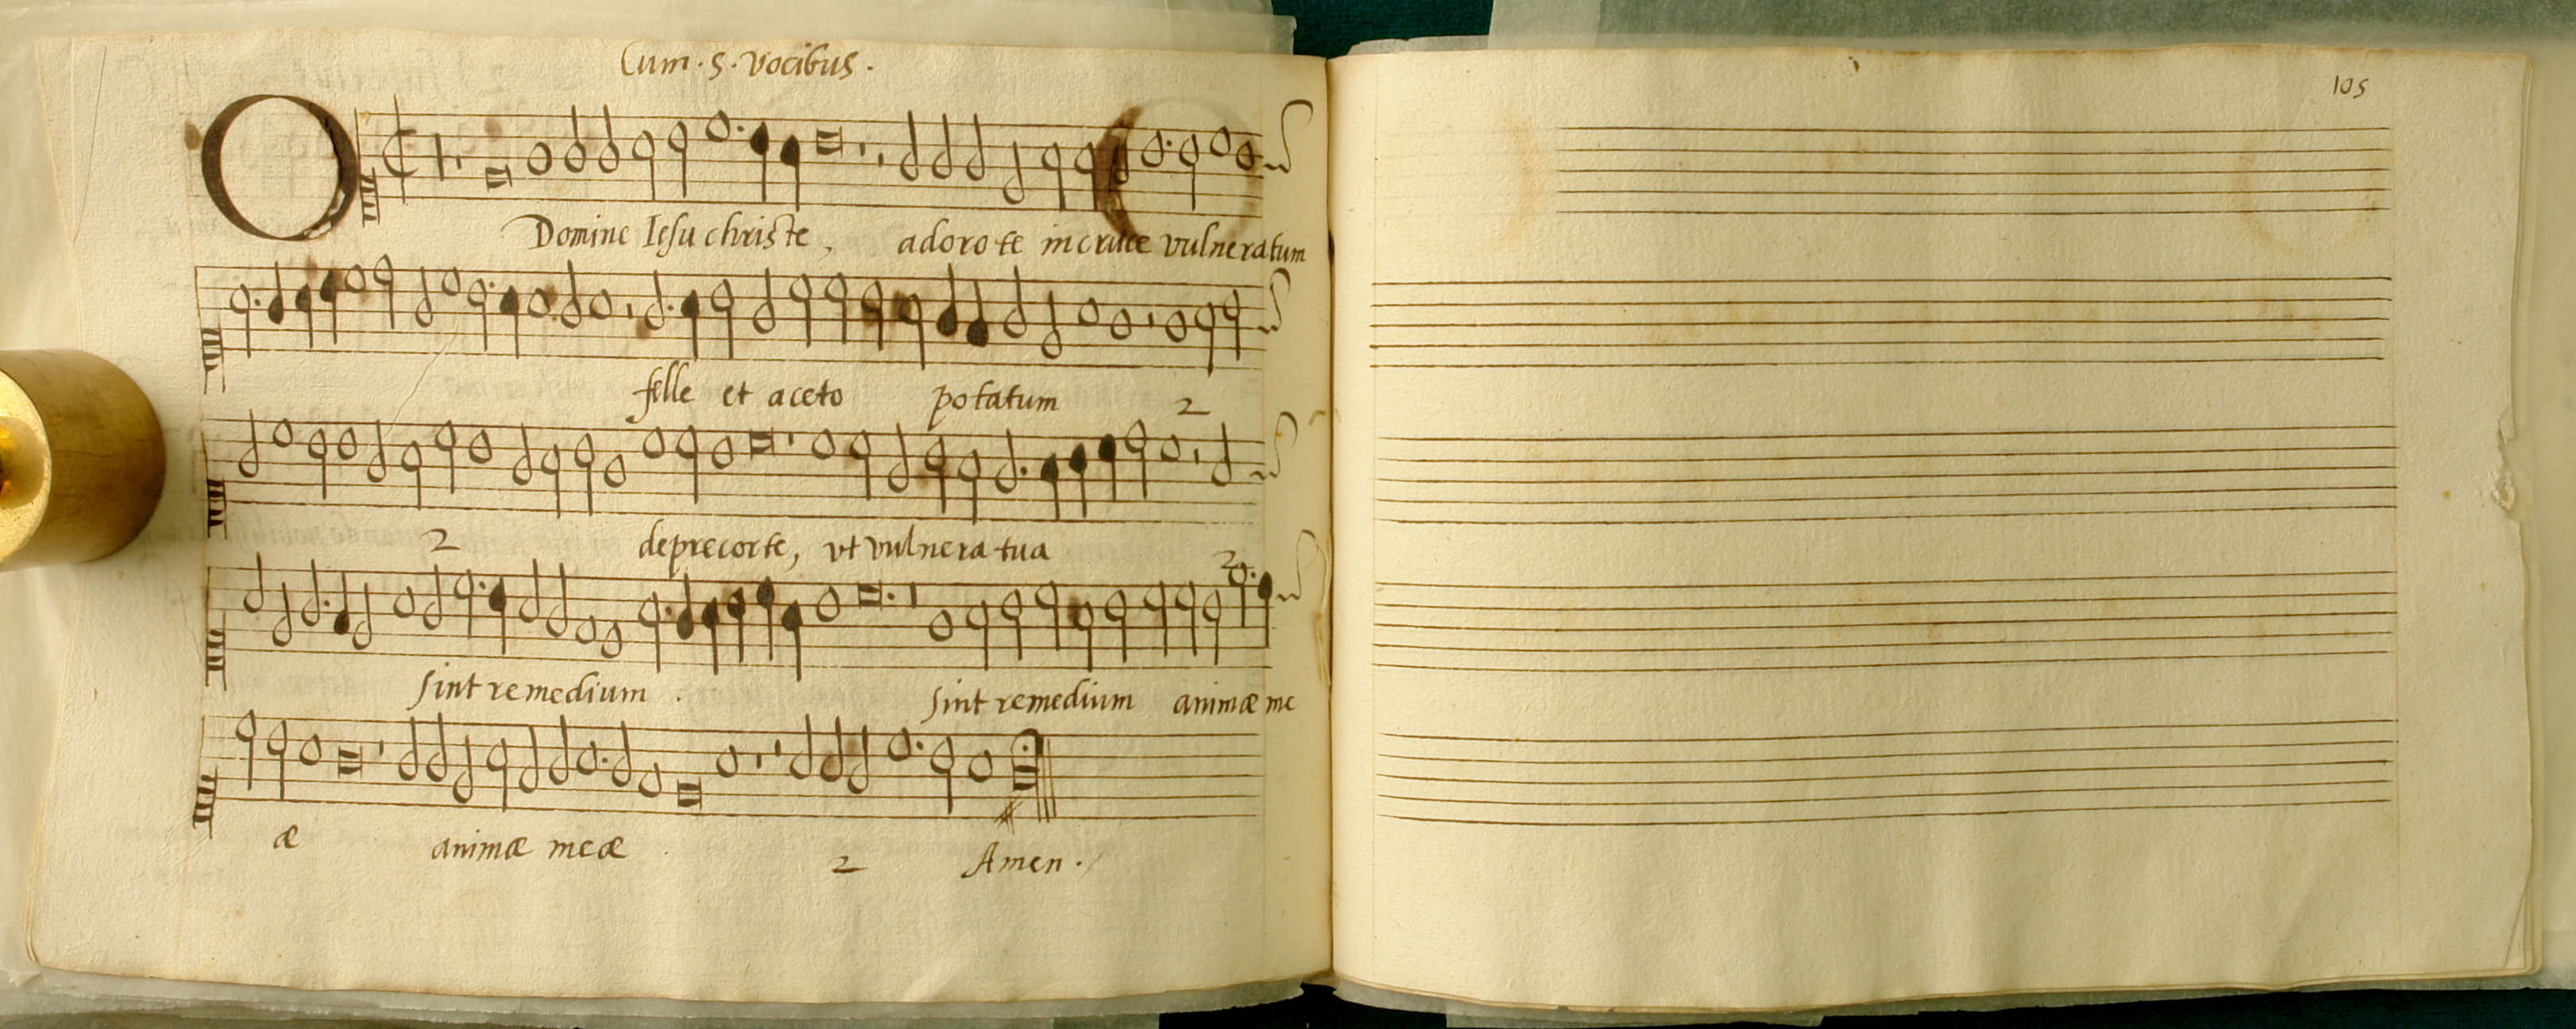 Cum · 5 · vocibus ·
O Domine Iesu christe, adoro te in cruce vulneratum
felle et aceto potatum 2
2 deprecor te, vt vulnera tua 2
sint remedium . sint remedium animæ me
æ animæ meæ 2 Amen ·
105